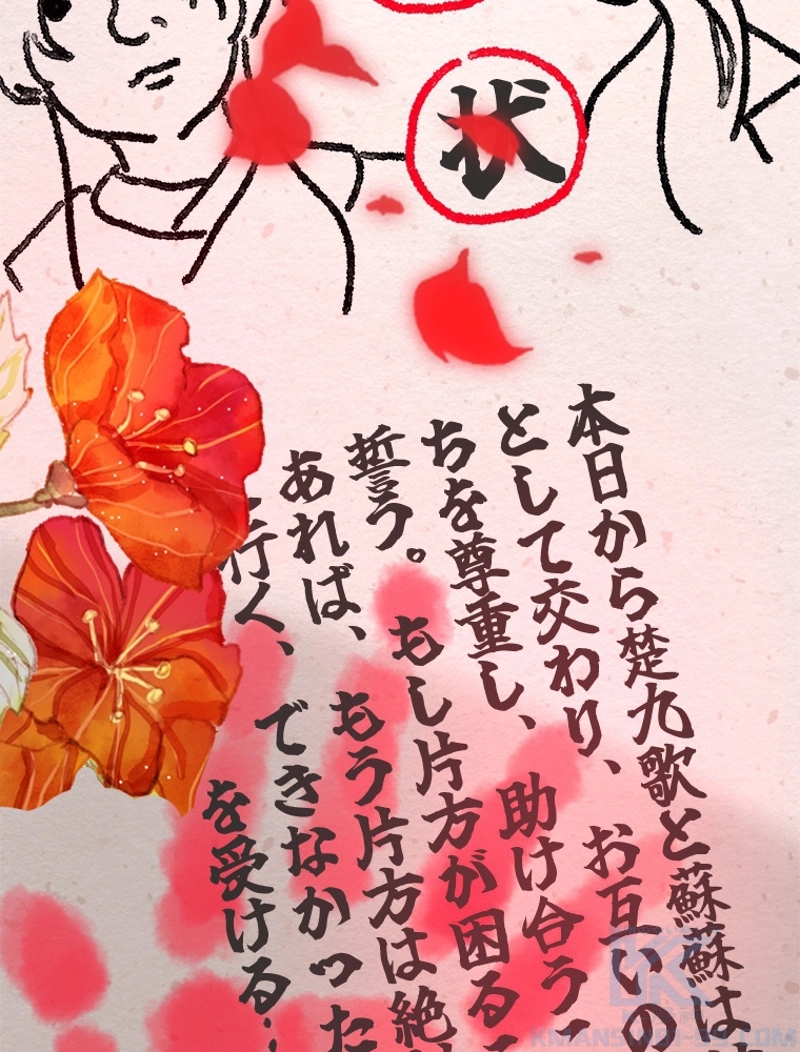 状
本日から楚九歌と蘇蘇は
として交わり、お互いの
ちを尊重し、助け合う
誓う。もし片方が困る
あれば、もう片方は絶
行く、できなかった
を受ける…
KMANSIN01-99.COM